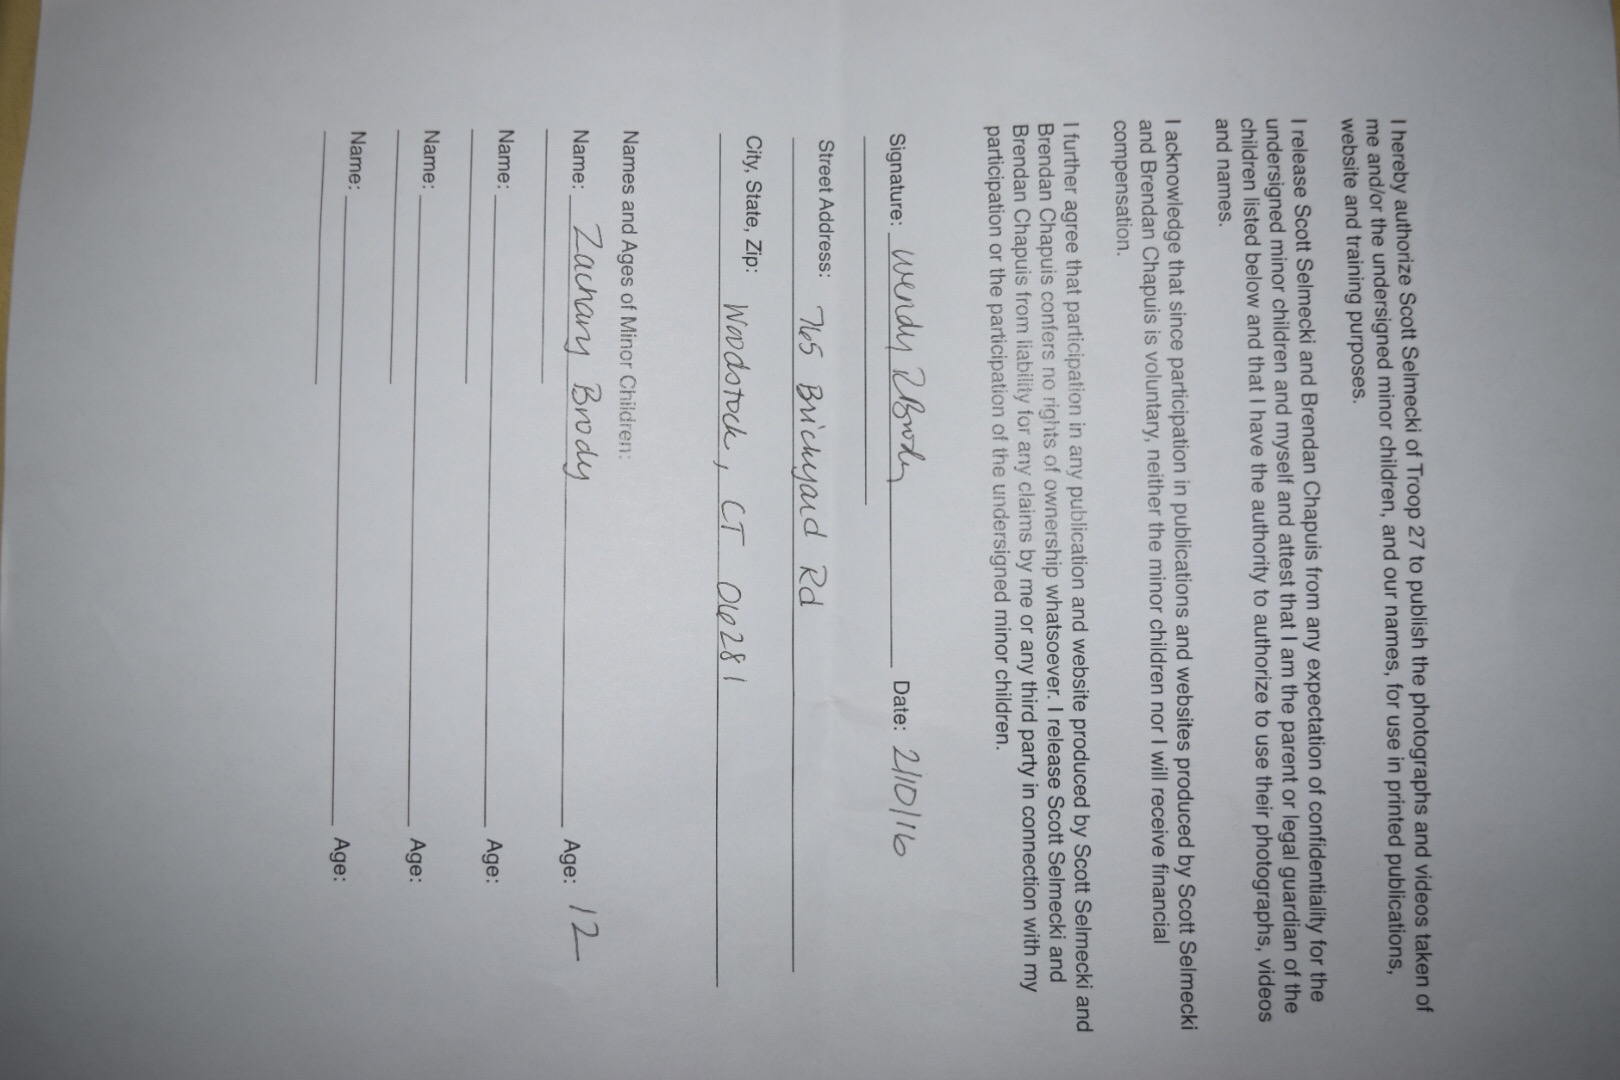 I hereby authorize Scott Selmecki of Troop 27 to publish the photographs and videos taken of
me and/or the undersigned minor children, and our names, for use in printed publications,
website and training purposes.
I release Scott Selmecki and Brendan Chapuis from any expectation of confidentiality for the
undersigned minor children and myself and attest that I am the parent or legal guardian of the
children listed below and that I have the authority to authorize to use their photographs, videos
and names.
I acknowledge that since participation in publications and websites produced by Scott Selmecki
and Brendan Chapuis is voluntary, neither the minor children nor I will receive financial
compensation.
I further agree that participation in any publication and website produced by Scott Selmecki and
Brendan Chapuis confers no rights of ownership whatsoever. I release Scott Selmecki and
Brendan Chapuis from liability for any claims by me or any third party in connection with my
participation or the participation of the undersigned minor children.
Signature: Wendy R Brody Date: 2/10/16
Street Address: 765 Brickyard Rd
City, State, Zip: Woodstock, CT 06281
Names and Ages of Minor Children:
Name: Zachary Brody Age: 12
Name: Age:
Name: Age:
Name: Age: